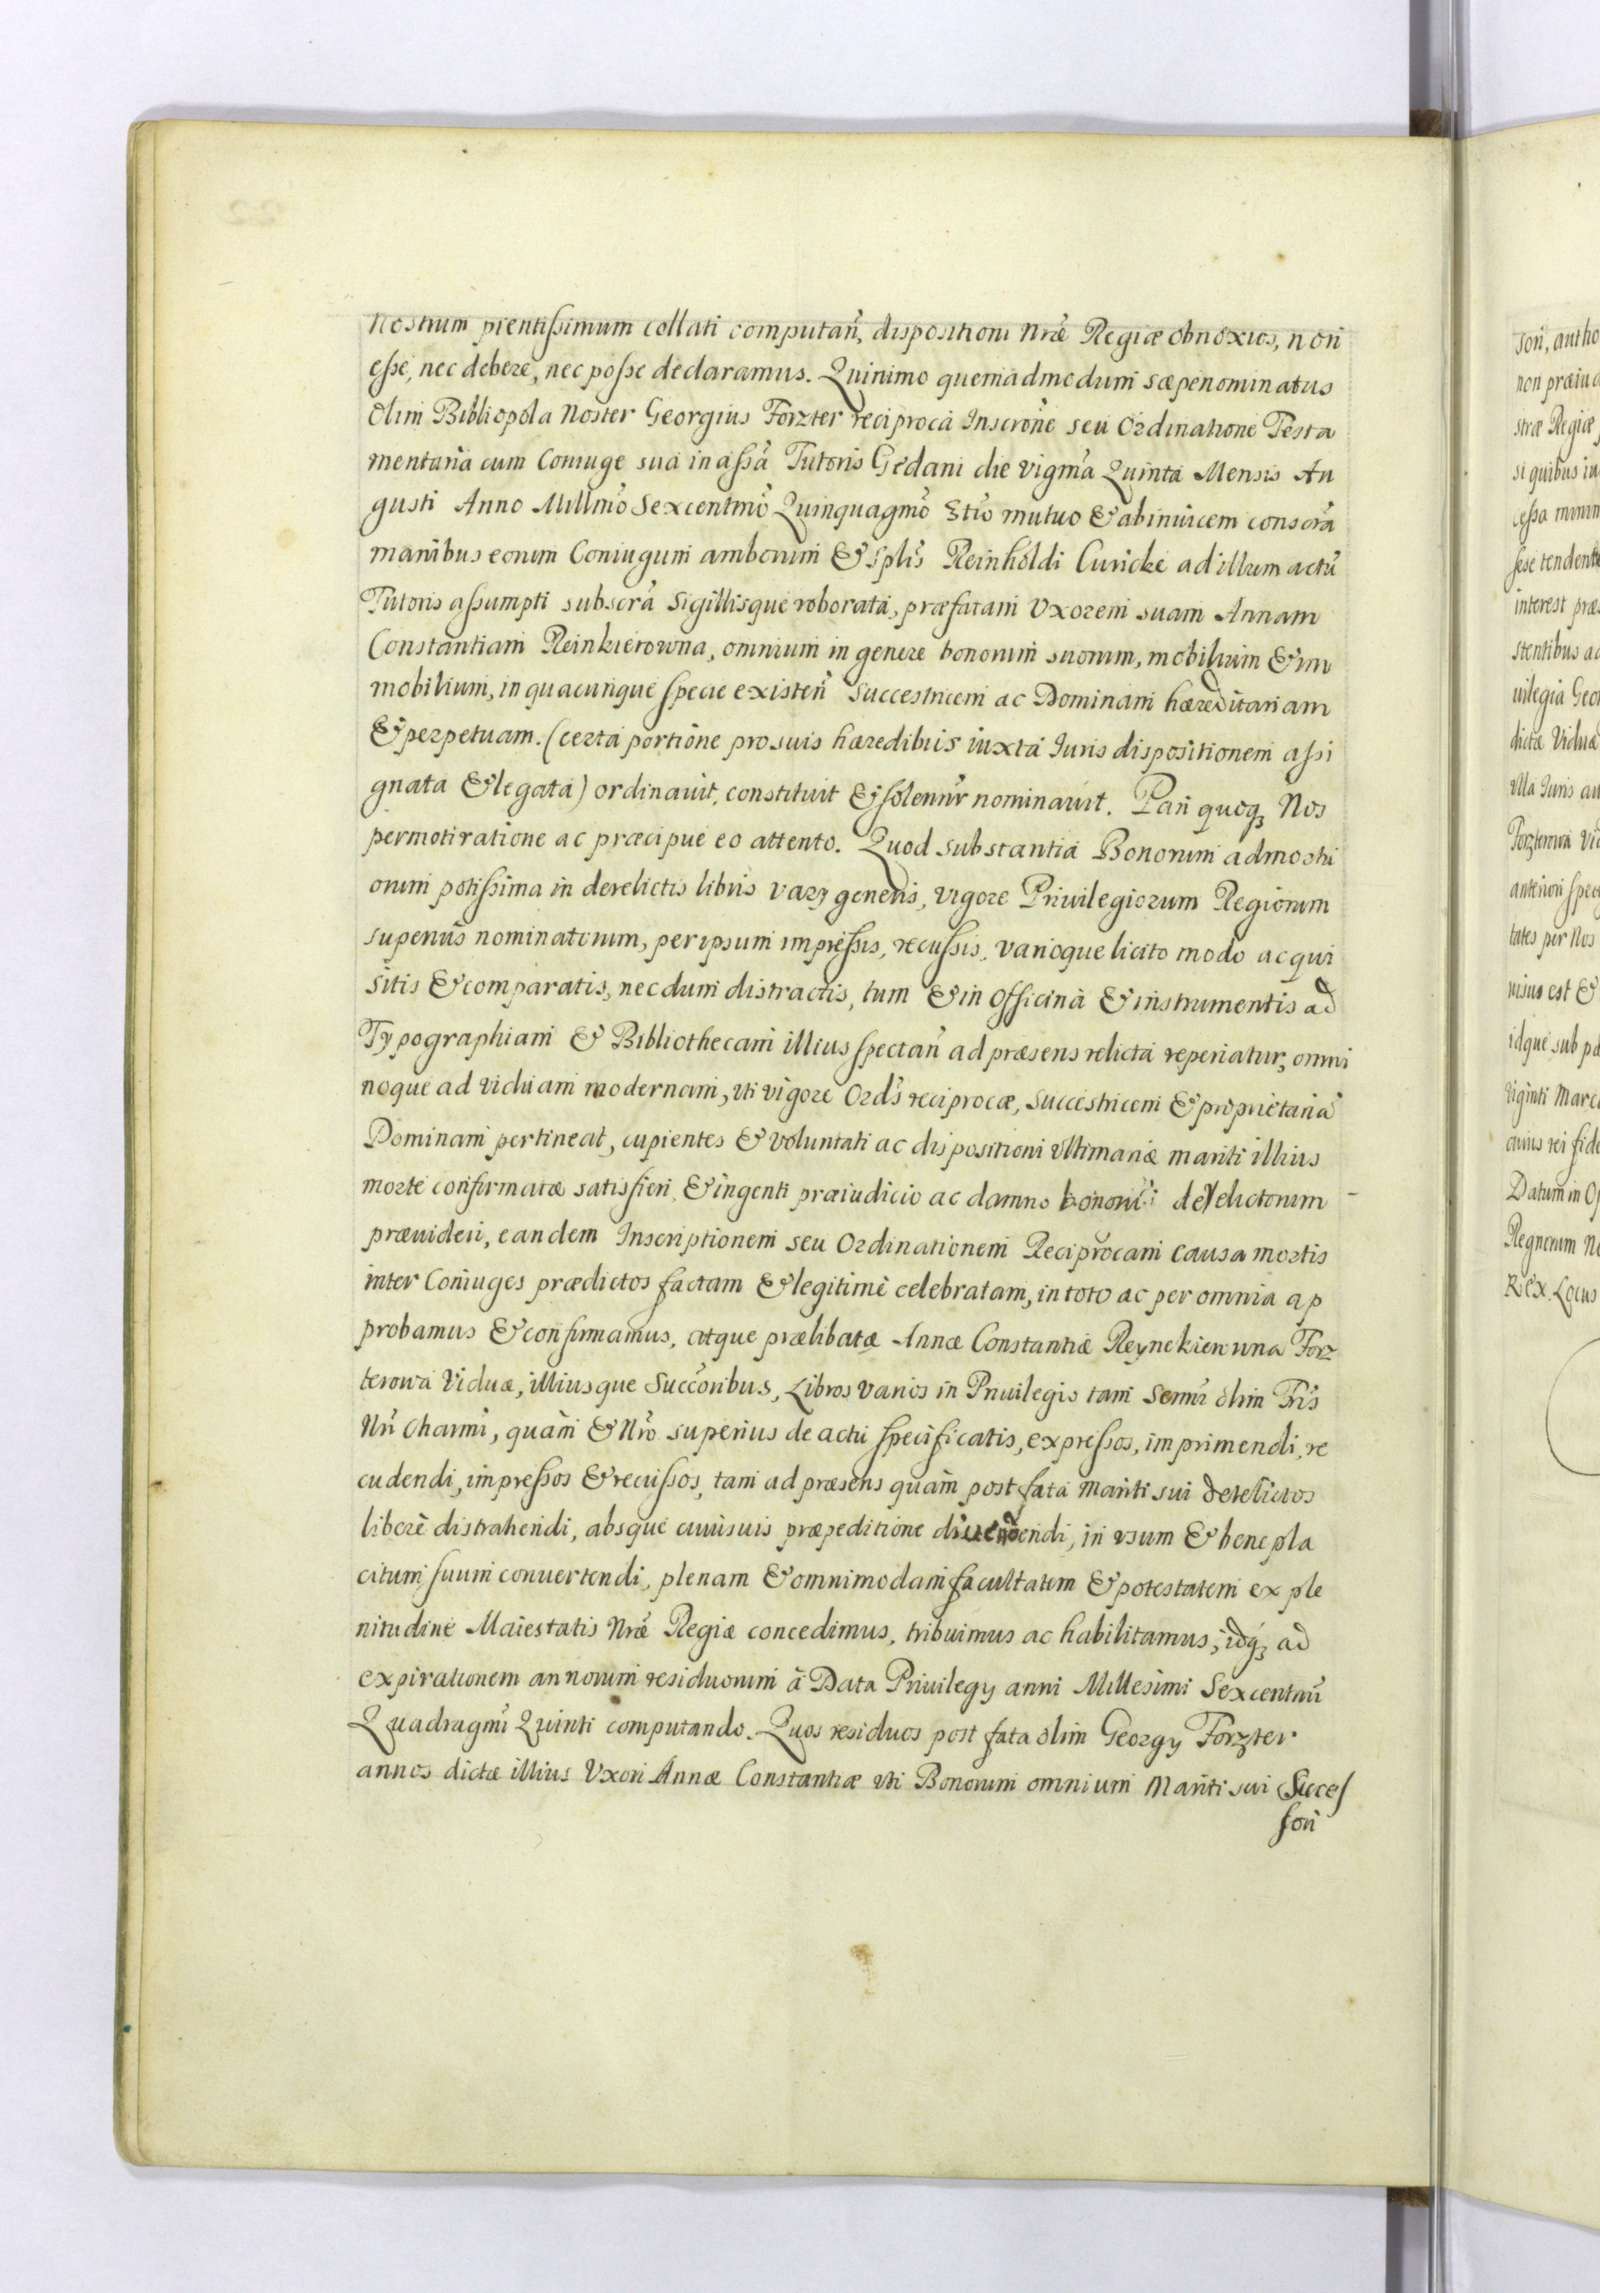 Nostrum pientissimum collati computañ, dispositioni Nræ̃ Regiæ obnoxios, non
esse, nec debere, nec posse declaramus. Quinimo quemadmodum sæpenominatus
Olim Bibliopola Noster Georgius Forzter reciproca Inscrõne seu Ordinatione Testa
mentaria cum Coniuge sua in assã Tutoris Gedani die vigm̃a Quinta Mensis Au
gusti Anno Millmõ Sexcentmõ Quinquagmõ 3tio mutuo & abinuicem conscrã
manibus eorum Coniugum amborum & splĩs Reinholdi Curicke ad illum actũ
Tutoris assumpti subscrã Sigillisque roborata, præfatam Vxorem suam Annam
Constantiam Reinkierowna, omnium in genere bonorum suorum, mobilium & im
mobilium, in quacunque specie existeñ Successricem ac Dominam hæreditariam
& perpetuam. (certa portione pro suis hæredibus iuxta Iuris dispositionem assi
gnata & legata) ordinauit, constituit & solenñr nominauit. Pari quoq; Nos
permoti ratione ac præcipue eo attento. Quod substantia Bonorum admostri
orum potissima in derelictis libris varij generis, vigore Priuilegiorum Regiorum
superius nominatorum, per ipsum impressis, recussis, varioque licito modo acqui
sitis & comparatis, necdum distractis, tum & in Officina & instrumentis ad
Typographiam & Bibliothecam illius spectañ ad præsens relicta reperiatur, omni
noque ad viduam modernam, vti vigore Ordĩs reciprocæ, Successricem & proprietariã
Dominam pertineat, cupientes & voluntati ac dispositioni vltimariæ mariti illius
morte confirmatæ satisfieri, & ingenti præiudicio ac damno bonorũ derelictorum
præuideri, eandem Inscriptionem seu Ordinationem Reciprocam causa mortis
inter Coniuges prædictos factam & legitime celebratam, in toto ac per omnia ap
probamus & confirmamus, atque prælibatæ Annæ Constantiæ Reynekierowna Forz
terowa Viduæ, illiusque Succõribus, Libros varios in Priuilegio tam Sermĩ olim Frĩs
Nrĩ Charmĩ, quàm & Nrõ superius de actu specificatis, expressos, imprimendi, re
cudendi, impressos & recussos, tam ad præsens quàm post fata Mariti sui derelictos
libere distrahendi, absque cuiusuis præpeditione diuendendi, in vsum & benepla
citum suum conuertendi, plenam & omnimodam facultatem & potestatem ex ple
nitudine Maiestatis Nræ̃ Regiæ concedimus, tribuimus ac habilitamus, idq; ad
expirationem annorum residuorum à Data Priuilegij anni Millesimi Sexcentmĩ
Quadragmĩ Quinti computando. Quos residuos post fata olim Georgij Forzter
annos dictæ illius Vxori Annæ Constantiæ vti Bonorum omnium Mariti sui Succes
sori
sori, autho
non præiud
stræ Regiæ
si quibus in
cessa minim
sese tendent
interest præ
stentibus a
uilegia Geor
dictæ Viduæ
vlla Iuris au
Forzterowa Vid
anteriori spec
tates per Nos
uisus est &
idque sub pæ
viginti Marc
cuius rei fide
Datum in O
Regnorum N
REX. Locus